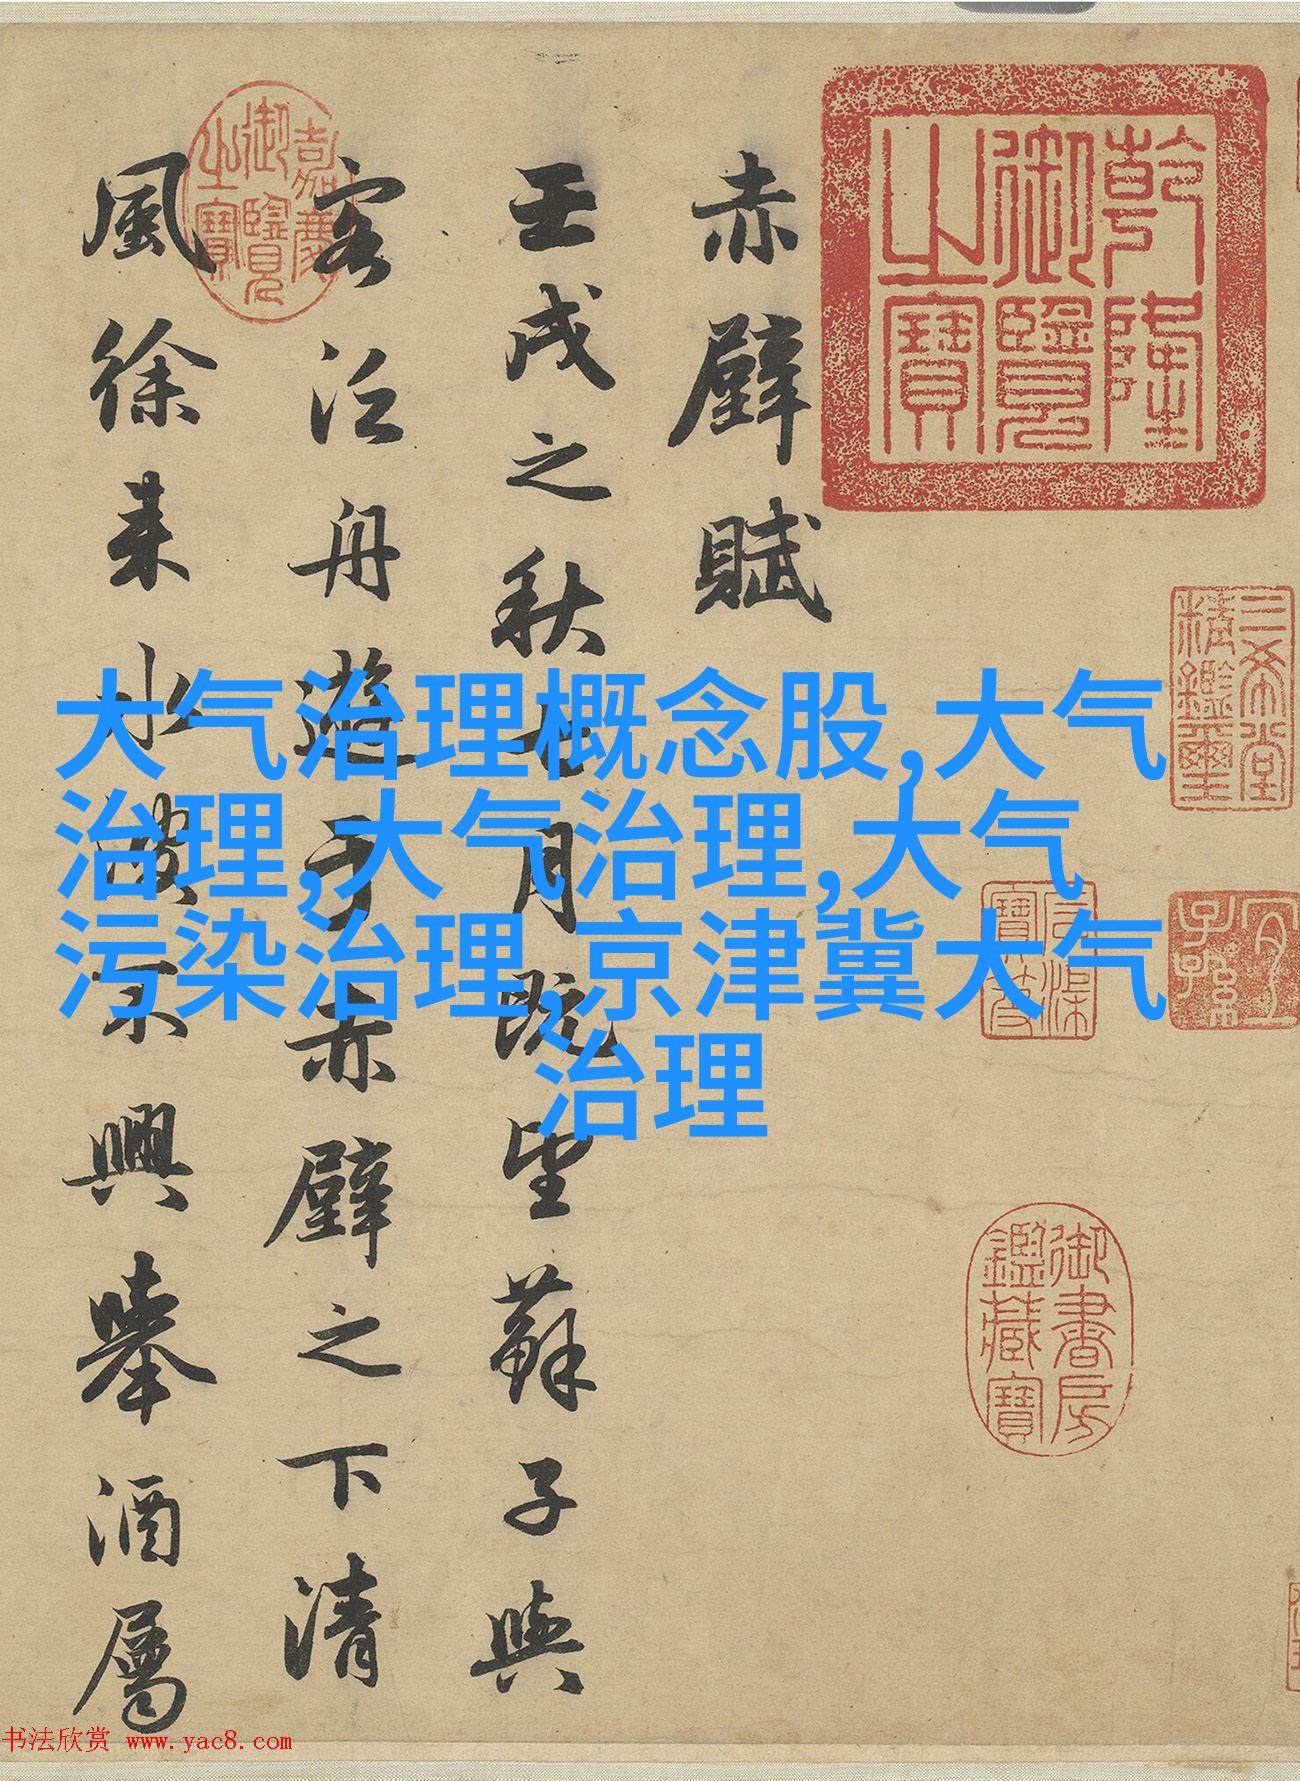 赤壁賦
壬戌之秋七月既望蘇子與
客泛舟遊于赤壁之下清
風徐来水波不興舉酒屬
乾隆御覽之寶
嘉慶御覽之寶
三希堂精鑑璽
宜子孫
御書房鑑藏寶
大气治理概念股,大气
治理,大气治理,大气
污染治理,京津冀大气
治理
书法欣赏 www.yac8.com